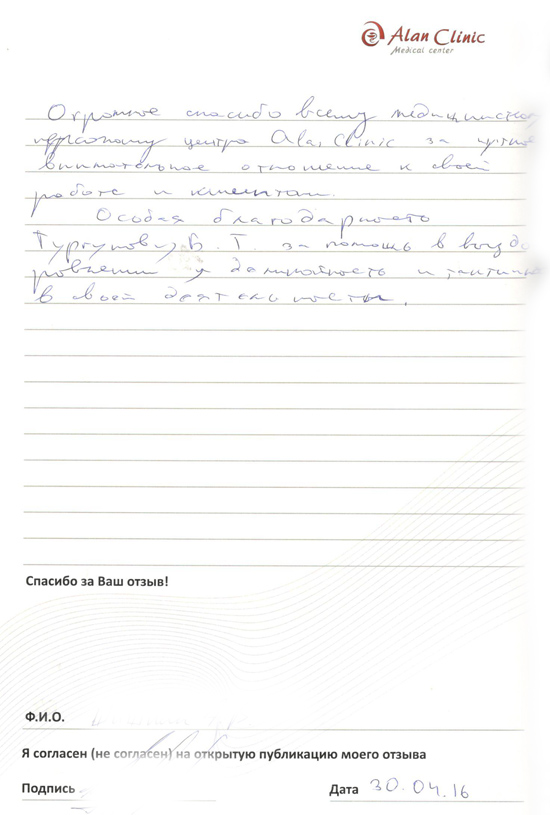 Alan Clinic
Medical center
Огромное спасибо всему медицинско
персоналу центра Alan Clinic за чуткое
внимательное отношение к своей
работе и клиентам.
Особая благодарность
Тургунову Б. Т. за помощь в выздо
ровлении, и тактичн
в своей деятельности.
Спасибо за Ваш отзыв!
Ф.И.О.
Я согласен (не согласен) на открытую публикацию моего отзыва
Подпись
Дата 30.04.16